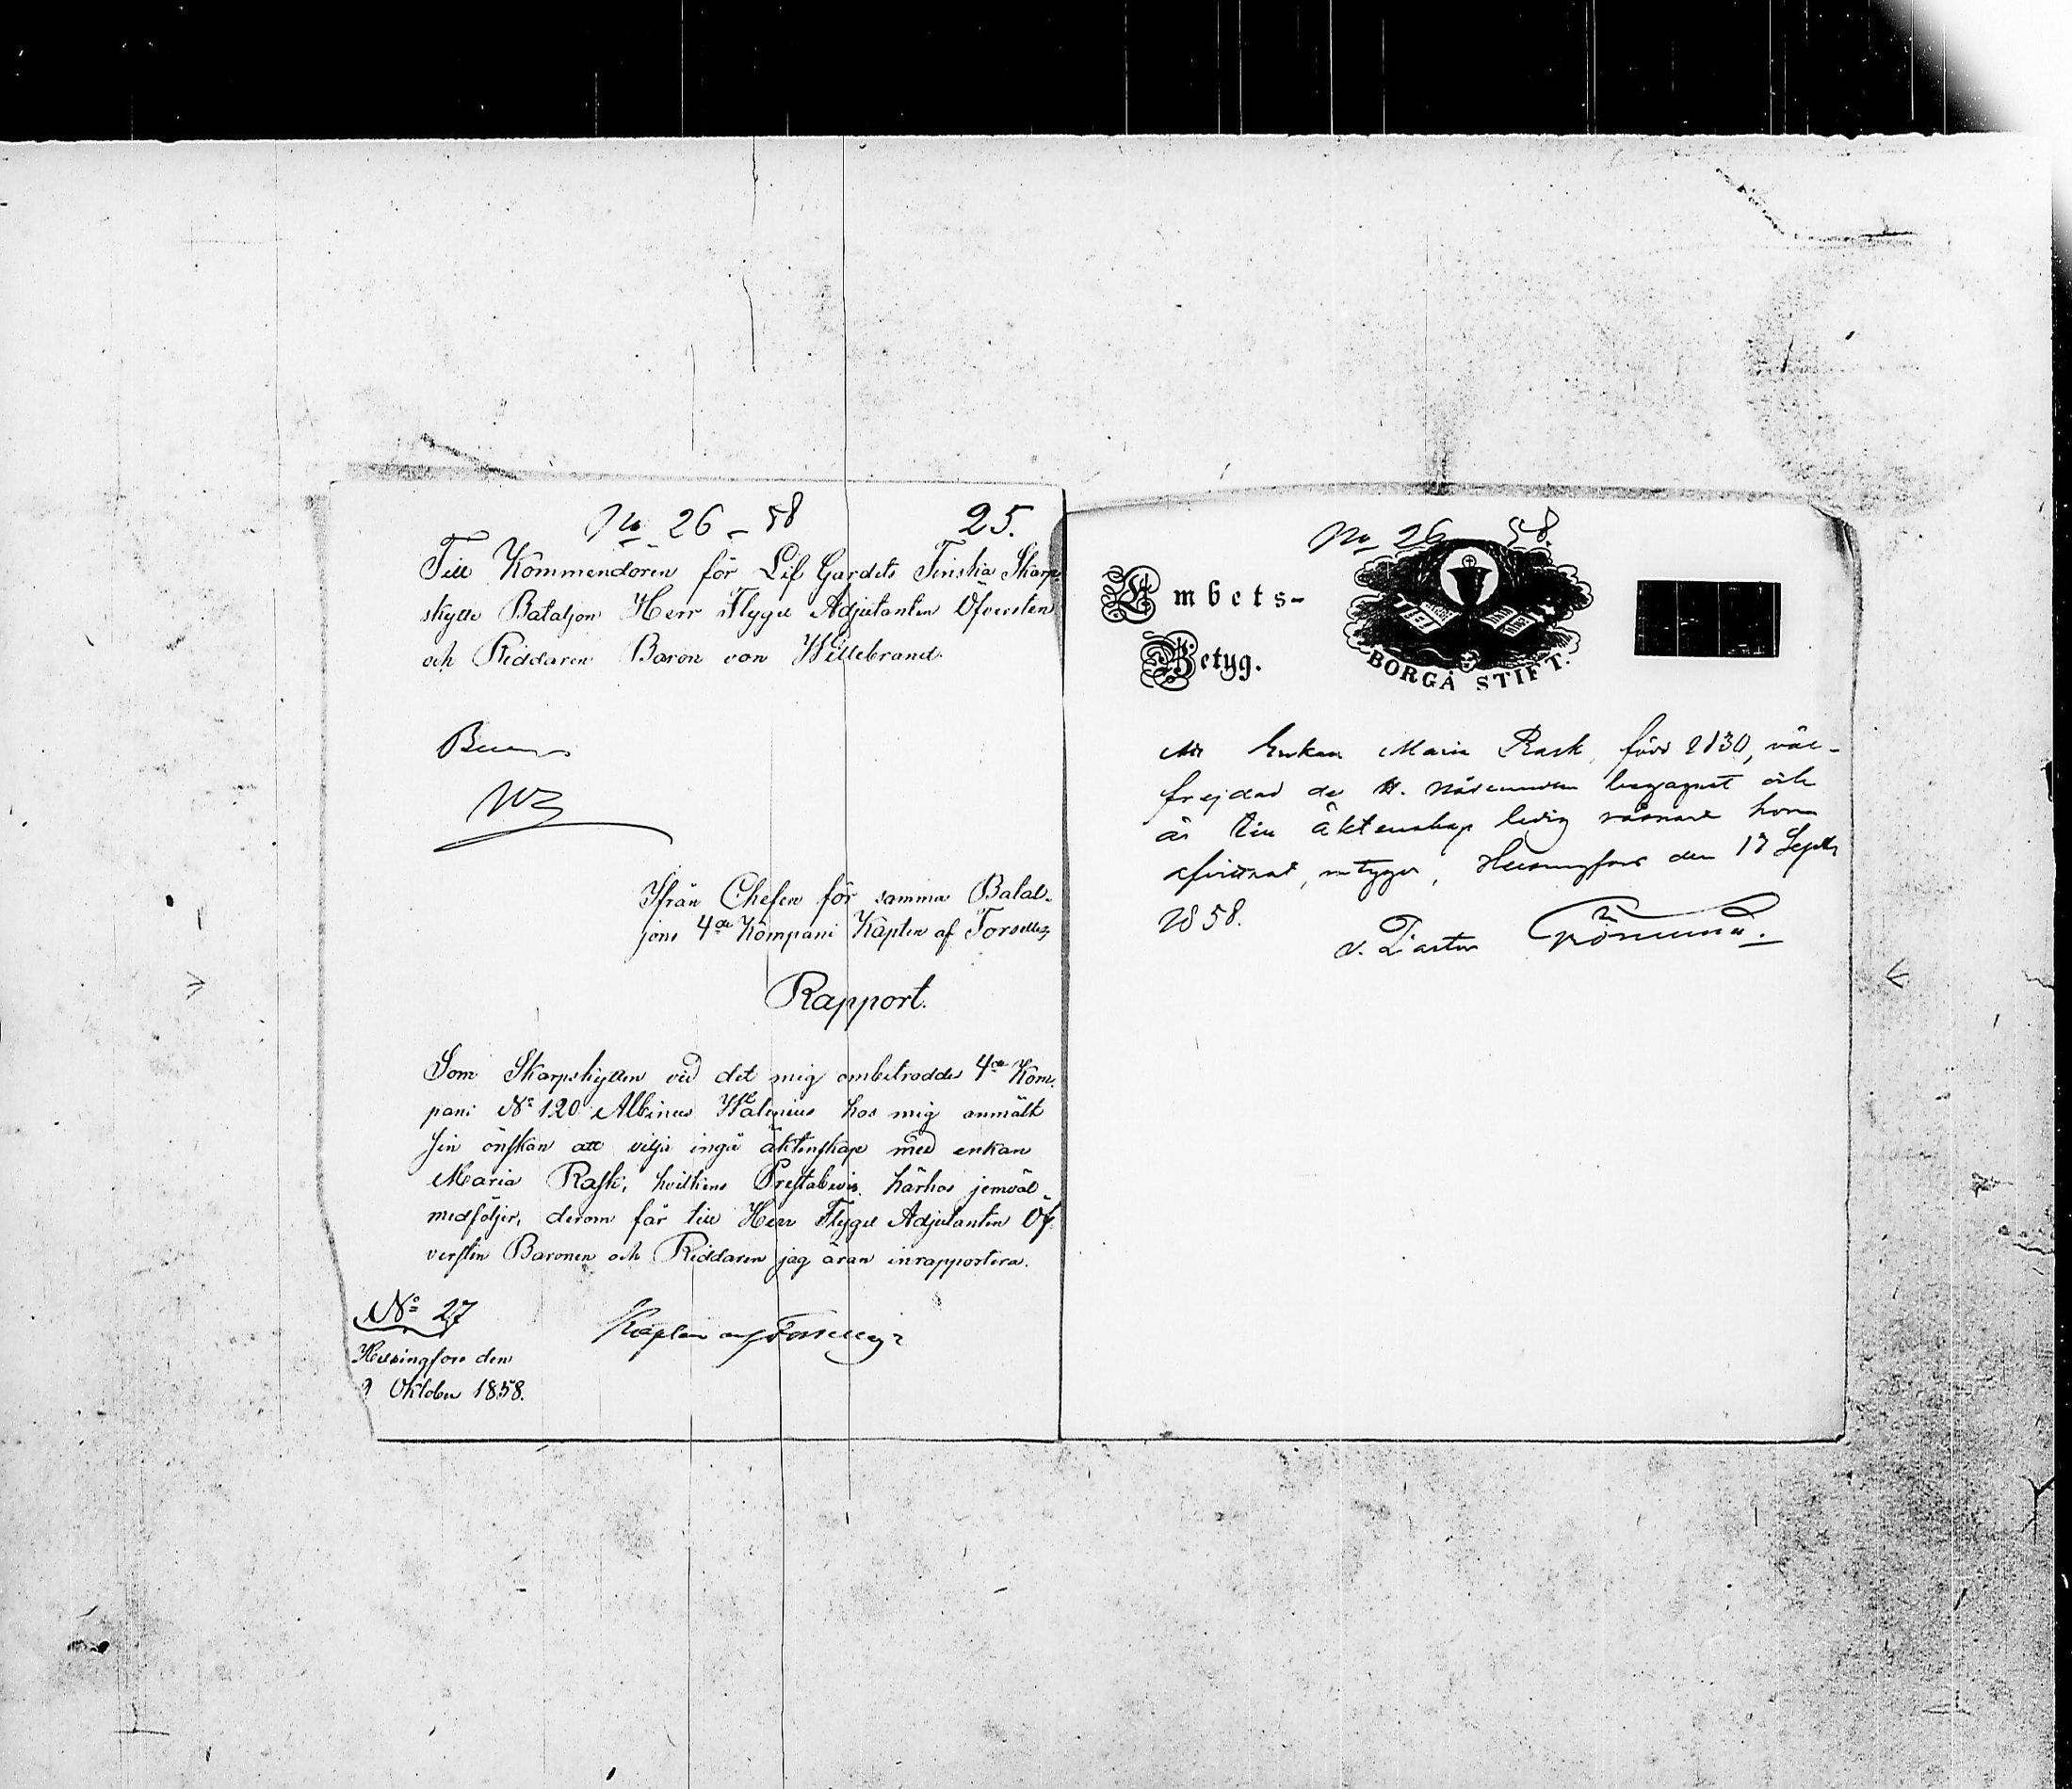 No 26 - 58 25.
Till Kommendören för Lif Gardets Finska Skarp
skytte Bataljon Herr Flygel Adjutanten Öfversten
och Riddaren Baron von Willebrand.
Ifrån Chefen för samma Batal-
jons 4de Kompani Kapten af Forselles
Rapport.
Som Skarpskytten vid det mig ombetrodde 4de Kom-
pani No 120 Albinus Walenius hos mig anmält
sin önskan att vilja ingå äktenskap med enkan
Maria Rask, hvilkens Prestabevis härhos jemväl
medföljer, derom får till Herr Flygel Adjutanten Öf-
versten Baronen och Riddaren jag äran inrapportera.
Kapten af Forselles
No 27
Helsingfors den
2 Oktober 1858.
No 26 58.
Embets-
Betyg.
BORGÅ STIFT.
Att Enkan Maria Rask, född 1830, väl-
frejdad, de H. Nådemedlen begagnat och
är till äktenskap ledig, såsnart hon
afvittrat, intygar, Helsingfors den 17 Sept
1858.
v. Pastor